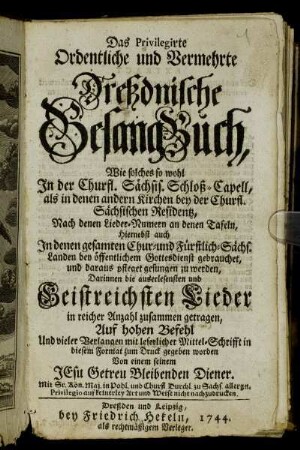 Das Privilegirte
Ordentliche und Vermehrte
Dreßdnische
Gesang-Buch,
Wie solches so wohl
In der Churfl. Sächsis. Schloß-Capell,
als in denen andern Kirchen bey der Churfl.
Sächsischen Residentz,
Nach denen Lieder-Numern an denen Tafeln,
Hiernebst auch
In denen gesamten Chur-und Fürstlich-Sächs.
Landen bey öffentlichem Gottesdienst gebrauchet,
und daraus pfleget gesungen zu werden,
Darinnen die auserlesensten und
Geistreichsten Lieder
in reicher Anzahl zusammen getragen,
Auf hohen Befehl
Und vieler Verlangen mit leserlicher Mittel-Schrifft in
diesem Format zum Druck gegeben worden
Von einem seinem
JEsu Getreu Bleibenden Diener.
Mit Sr. Kön. Maj. in Pohl. und Churfl. Durchl. zu Sachs. allergn.
Privilegio auf keinerley Art und Weise nicht nachzudrucken.
Dreßden und Leipzig,
bey Friedrich Hekeln, 1744.
als rechtmäßigem Verleger.